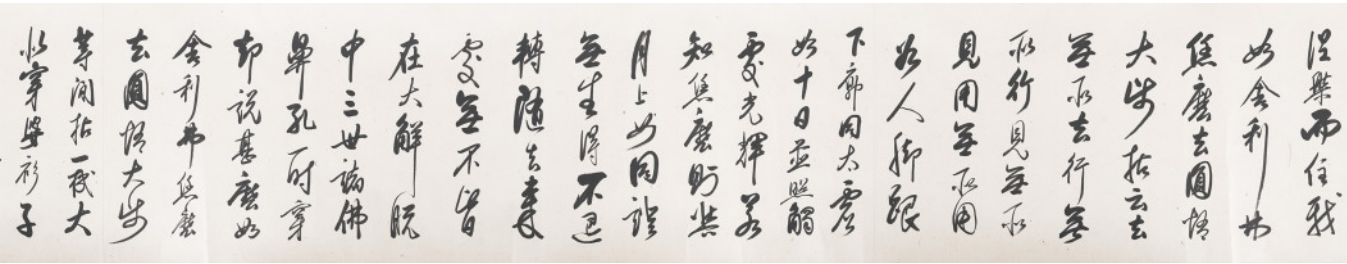 涅槃而住我
如舍利弗
恁麼去圓悟
大師拈云去
無所去行無
所行見無所
見用無所用
若人脚跟
下廓同太虛
如十日並照觸
處光輝若
知恁麼則與
月上女同證
無生得不退
轉隨去來
處無不皆
在大解脫
中三世諸佛
鼻孔一時穿
却說甚麼如
舍利弗恁麼
去圓悟大師
等閑拈一機大
似穿衫子